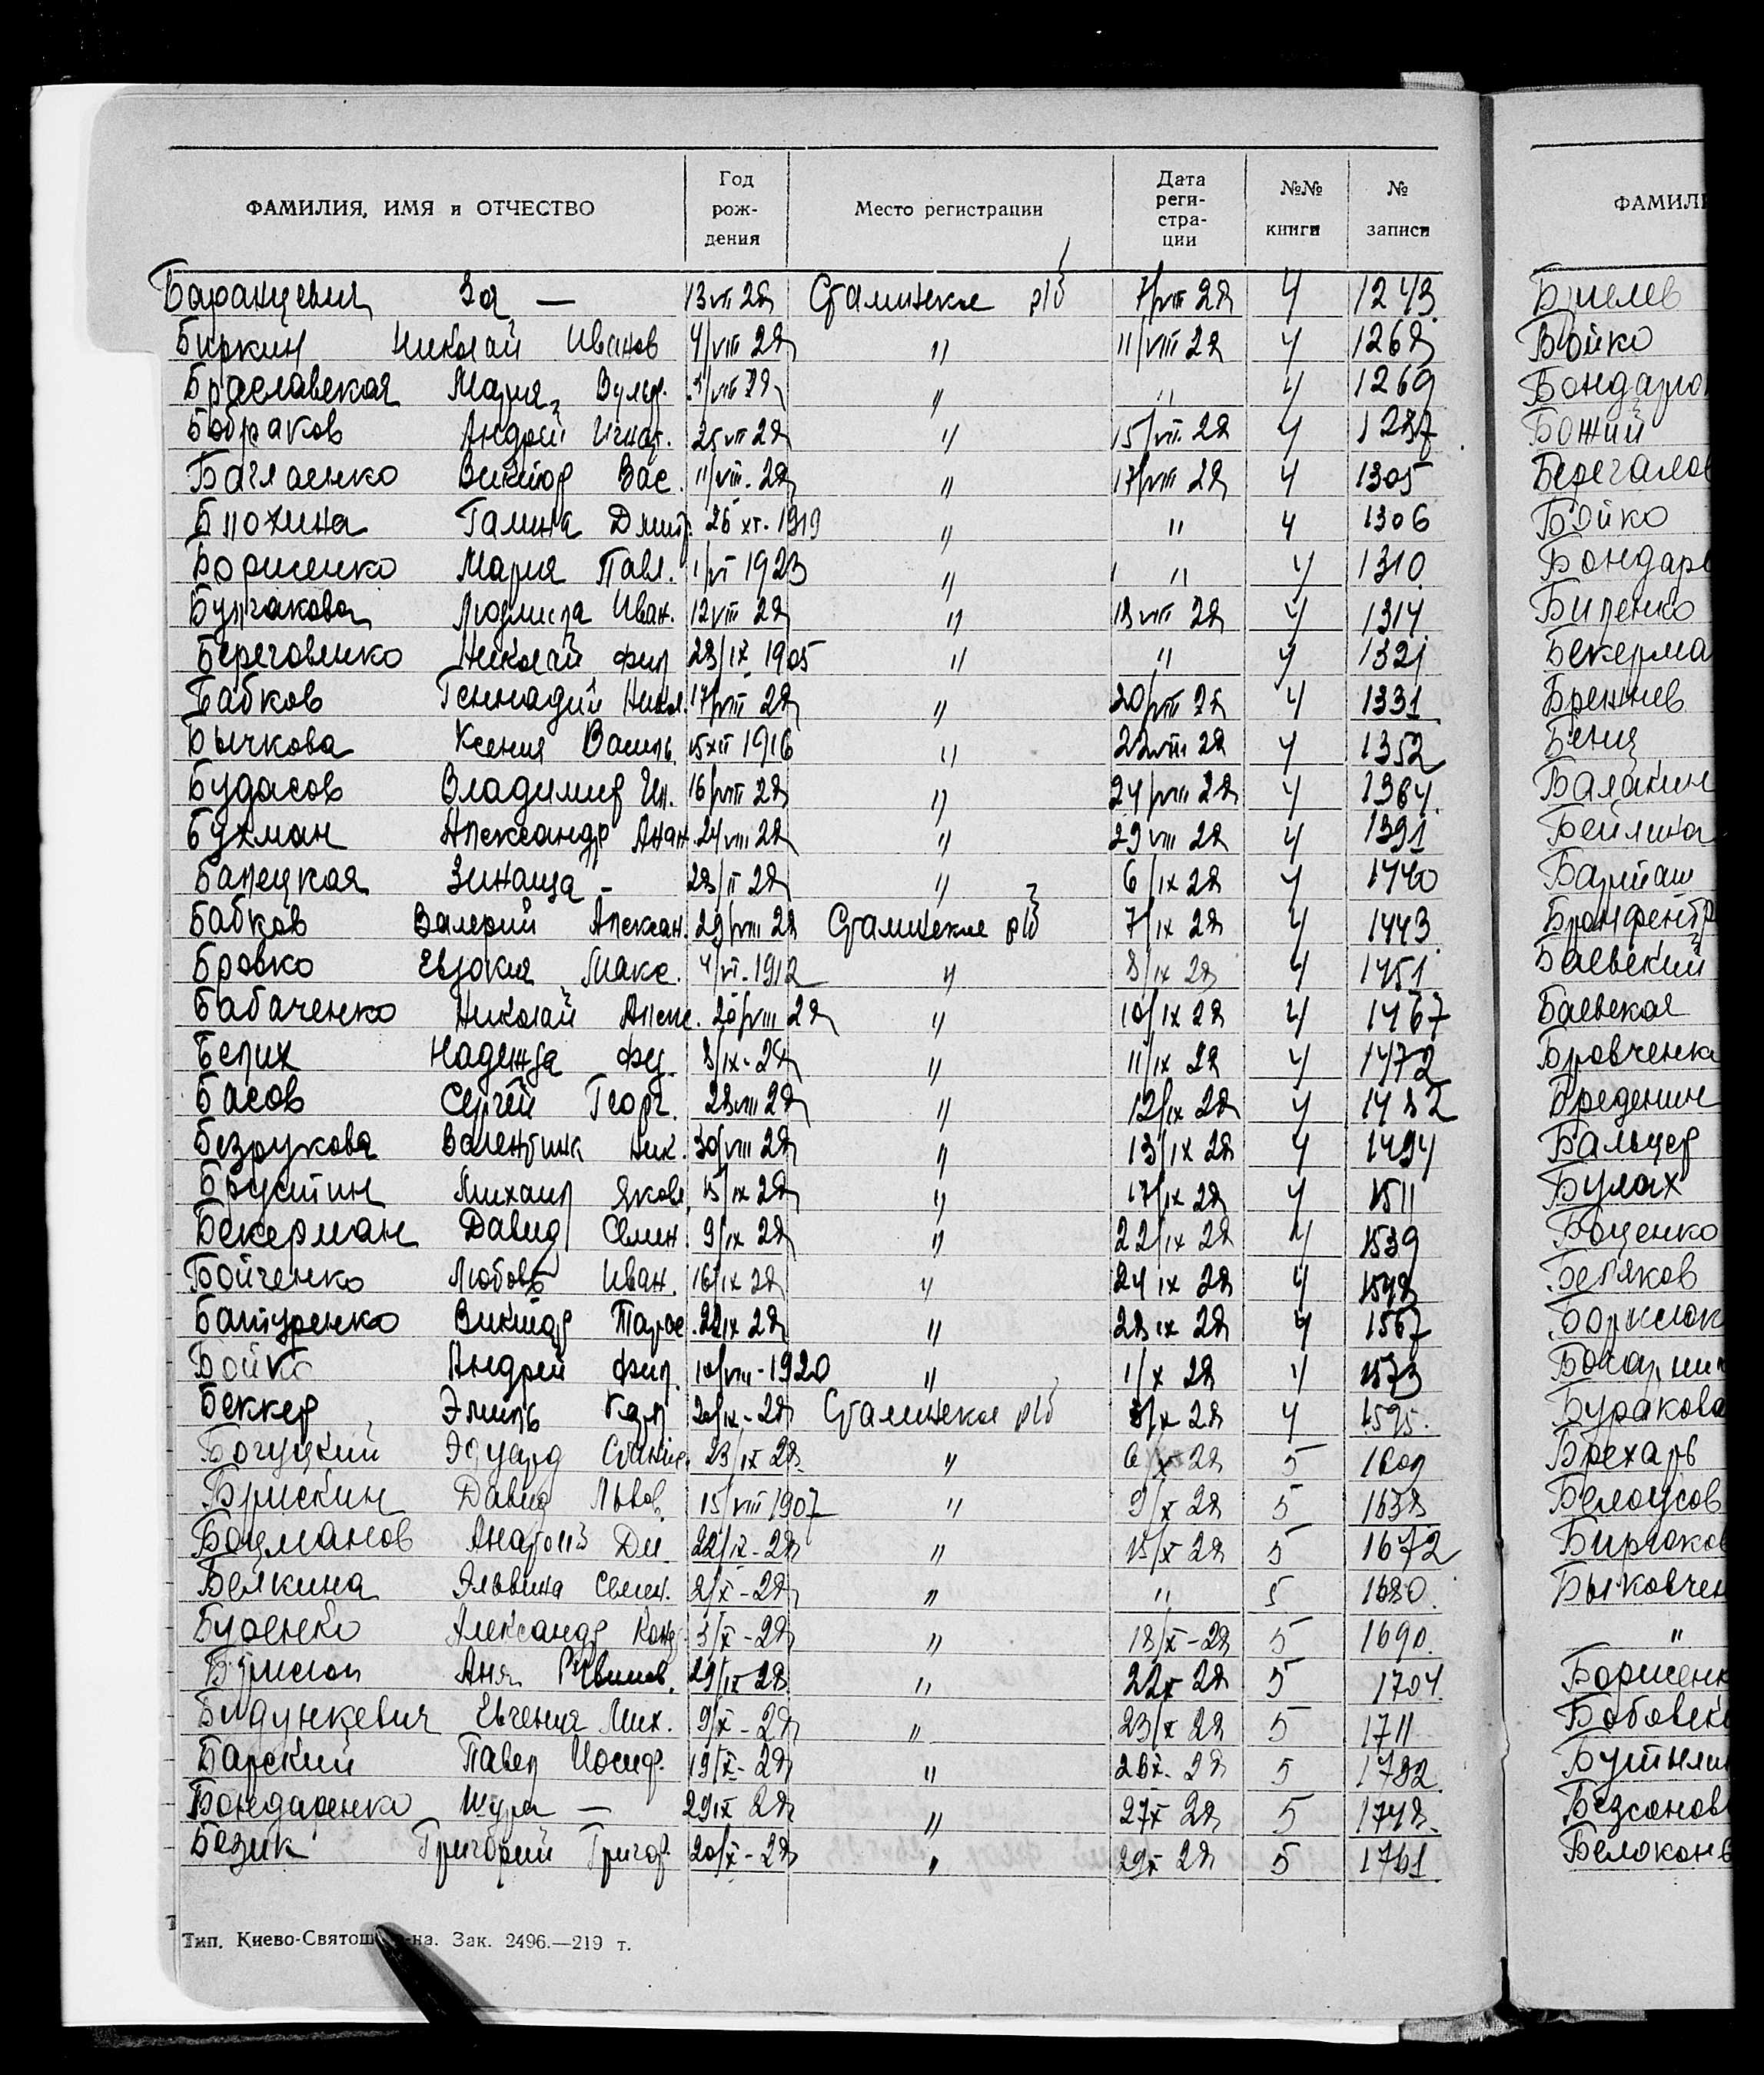 ФАМИЛИЯ, ИМЯ и ОТЧЕСТВО Год рождения Место регистрации Дата регистрации №№ книги № записи
Баранцевич За — 13 VII 28 Сталинское р/б 7/VIII 28 4 1243
Биркин Николай Иванов 4/VIII 28 " 11/VIII 28 4 1268
Браславская Мария Вульф. 28 " " 4 1269
Бобраков Андрей Игнат. 25 VII 28 " 15/VIII 28 4 1287
Виктор Вас. 11/VIII. 28 " 17/VIII 28 4 1305
Блохина Галина Дмитр. 26 XI. 1919 " " 4 1306
Борисенко Мария Павл. 1/VI 1923 " " 4 1310
Булгакова Людмила Иван. 12 VIII 28 " 18 VIII 28 4 1314
Береговенко Николай Фил 28/IX 1905 " " 4 1321
Бабков Геннадий Никол. 17/VIII 28 " 20/VIII 28 4 1331
Бычкова Ксения Василь. 15 XII 1916 " 22 VIII 28 4 1352
Будасов Владимир Ил. 16/VIII 28 " 24/VIII 28 4 1364
Бухман Александр Анан. 24 VIII 28 " 29 VIII 28 4 1391
Балецкая Зинаида — 28/II 28 " 6/IX 28 4 1440
Бабков Валерий Алексан. 29/VIII 28 Сталинское р/б 7/IX 28 4 1443
Бровко Евдокия Макс. 4/VI-1912 " 8/IX 28 4 1451
Бабаченко Николай Алекс. 20/VIII 28 " 10/IX 28 4 1467
Белих Надежда Фед. 8/IX-28 " 11/IX 28 4 1472
Басов Сергей Георг. 28 VIII 28 " 12/IX 28 4 1482
Безрукова Валентина Ник. 30/VIII 28 " 13/IX 28 4 1494
Брустин Михаил Яковл 15/IX 28 " 17/IX 28 4 1511
Бекерман Давид Семен. 9/IX 28 " 22/IX 28 4 1539
Бойченко Любовь Иван. 16/IX 28 " 24 IX 28 4 1548
Батуренко Виктор Тарас. 22 IX 28 " 28 IX 28 4 1567
Бойко Андрей Фил. 10/VIII-1920 " 1/X 28 4 1573
Беккер Эмиль Карл 20/IX-28 Сталинское р/б /X 28 4 1595.
Богуцкий Эдуард Станис. 23/IX 28 " 6/X 28 5 1609
Брискин Давид Львов. 15/VIII 1907 " 9/X 28 5 1638
Боцманов Анатолий Дм. 22/IX-28 " 15/X 28 5 1672
Белкина Эльвина Семен. 2/X-28 " " 5 1680.
Буренко Александр Конд 3/X-28 " 18/X-28 5 1690.
Аня 29/IX 28 " 22 X 28 5 1704.
Бидункевич Евгения Мих. 9/X-28 " 23/X 28 5 1711
Барский Павел Иосиф. 19/X-28 " 26 X. 28 5 1732
Бондаренко Шура — 29 IX 28 " 27 X 28 5 1748.
Безик Григорий Григор. 20/X-28 " 29 X 28 5 1761
Тип. Киево-Святош р-на. Зак. 2496.—219 т.
ФАМИЛИ
Бойко
Божий
Бойко
Биленко
Бекерма
Брежнев
Бенц
Балакин
Бейлина
Баевский
Баевская
Бровченк
Бреденин
Бальцер
Булах
Боценко
Беляков
Буракова
Брехарь
Белоусов
Быковчен
"
Борисенк
Бобовск
Безсонов
Белоконь